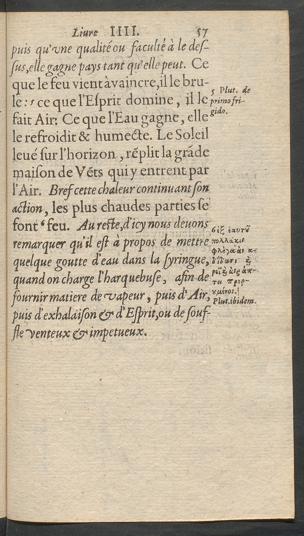 Liure IIII. 57
puis qu'vne qualité ou faculté à le des-
sus, elle gagne pays tant qu'elle peut. Ce
que le feu vient à vaincre, il le bru-
le: ⁵ ce que l'Esprit domine, il le
fait Air: Ce que l'Eau gagne, elle
le refroidit & humecte. Le Soleil
leué sur l'horizon, rẽplit la grãde
maison de Vẽts qui y entrent par
l'Air. Bref cette chaleur continuant son
action, les plus chaudes parties se
font ⁶ feu. Au reste, d'icy nous deuons
remarquer qu'il est à propos de mettre
quelque goutte d'eau dans la syringue,
quand on charge l'harquebuse, afin de
fournir matiere de vapeur, puis d'Air,
puis d'exhalaison & d'Esprit, ou de souf-
fle venteux & impetueux.
5 Plut. de
primo fri-
gido.
Plut. ibidem.